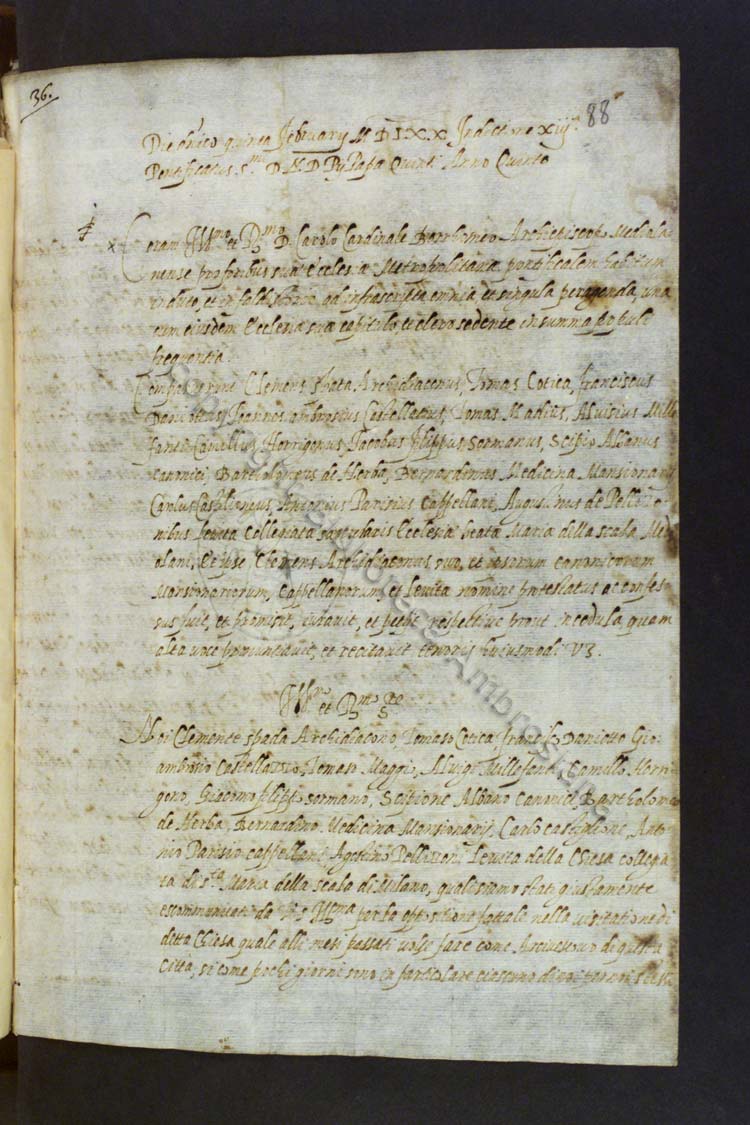 36.
88
Die dnico quinto februarij M D LXX Indictione xiij
Pontificatus S.mi D. N. D Pij Papa Quinti Anno Quinto
Coram Ill.mo et R.mo D. Carolo Cardinale Borrhomeo Archiepiscopo Mediola
nense pro foribus sua Ecclesia Metropolitana pontificalem habitum
induto, et in faldistorio ad infrascripta omnia et singula peragenda, una
cum eiusdem Ecclesia sua capitulo et clero sedente in summa populi
frequentia.
Comparverunt Clemens spata Archidiaconus, Tomas Cotica, franciscus
Daniottus, Joannes ambrosius Castellattus, Tomas Madius, Aluisius Mille
fanti Camillus Horrigonus, Jacobus filippus Sormanus, Scipio Albanus
Canonici, Bartholomeus de Herba, Bernardinus Medicina Mansionarij
Carolus Castilioneus, Antonius Parisius Cappellani, Augustinus de Pellizo
nibus Levita Collegiata sacularis Ecclesia beata Maria della scala Me
olani, Et ipse Clemens Archidiaconus suo, et ipsorum canonicorum
Mansionariorum, Cappellanorum, et Levita nomine protestatus ac confes
sus fuit, et promisit, iuravit, et petijt respective prout in cedula quam
alta voce pronuntiavit, et recitavit tenoris huiusmodi vz.
Ill.mo et R.mo
Noi Clemente spada Archidiacono, Tomaso Cotica, francesco Daniotto Gio:
ambrosio Castellatto, Tomaso Maggi, Aluigi Millefanti, Camillo Horri
gono, Giacomo filippo sormano, Scipione Albano Canonici Bartholomeo
de Herba, Bernardino Medicina Mansionarij, Carlo castiglione, Anto
nio Parisio cappellani Agostino Pellizoni Levita della Chiesa collegia
ta di S.ta Maria della scala di Milano, quali siamo stati giustamente
escommunicati da V. S. Ill.ma per la oppositione fattale nella visitatione di
detta Chiesa quale alli mesi passati volse fare come Arcivescovo di questa
Città, si come pochi giorni sono in particolare ciascuno di noi